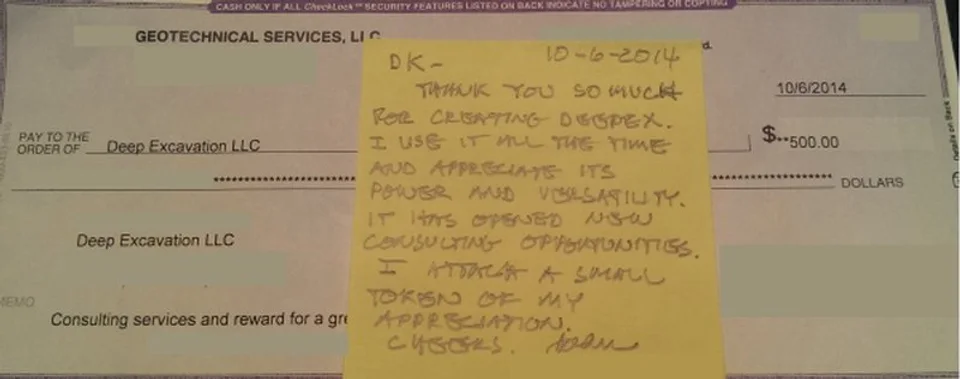 CASH ONLY IF ALL CheckLock™ SECURITY FEATURES LISTED ON BACK INDICATE NO TAMPERING OR COPYING
GEOTECHNICAL SERVICES, LLC
10/6/2014
PAY TO THE
ORDER OF Deep Excavation LLC
$ **500.00
DOLLARS
Details on Back
Deep Excavation LLC
MEMO
Consulting services and reward for a gre
DK- 10-6-2014
THANK YOU SO MUCH
FOR CREATING DEEPEX.
I USE IT ALL THE TIME
AND APPRECIATE ITS
POWER AND VERSATILITY.
IT HAS OPENED NEW
CONSULTING OPPORTUNITIES.
I ATTACH A SMALL
TOKEN OF MY
APPRECIATION.
CHEERS.